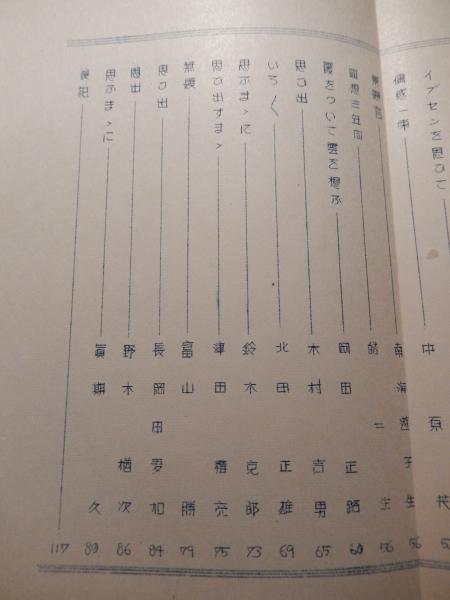 イプセンを思ひて 中原 共 5
偶感一束 南海遊子生 56
言 二生 56
回想三年間 岡田正路 60
をついて雲を想ふ 木村吉男 65
思ひ出 北田正雄 69
いろ〱 鈴木克郎 73
思ふまゝに 津田 亮 75
思ひ出すまゝ 富山勝 79
無題 長岡田麦加 84
思ひ出 野木楢次 86
思出 久 89
思ふまゝに
後記 117